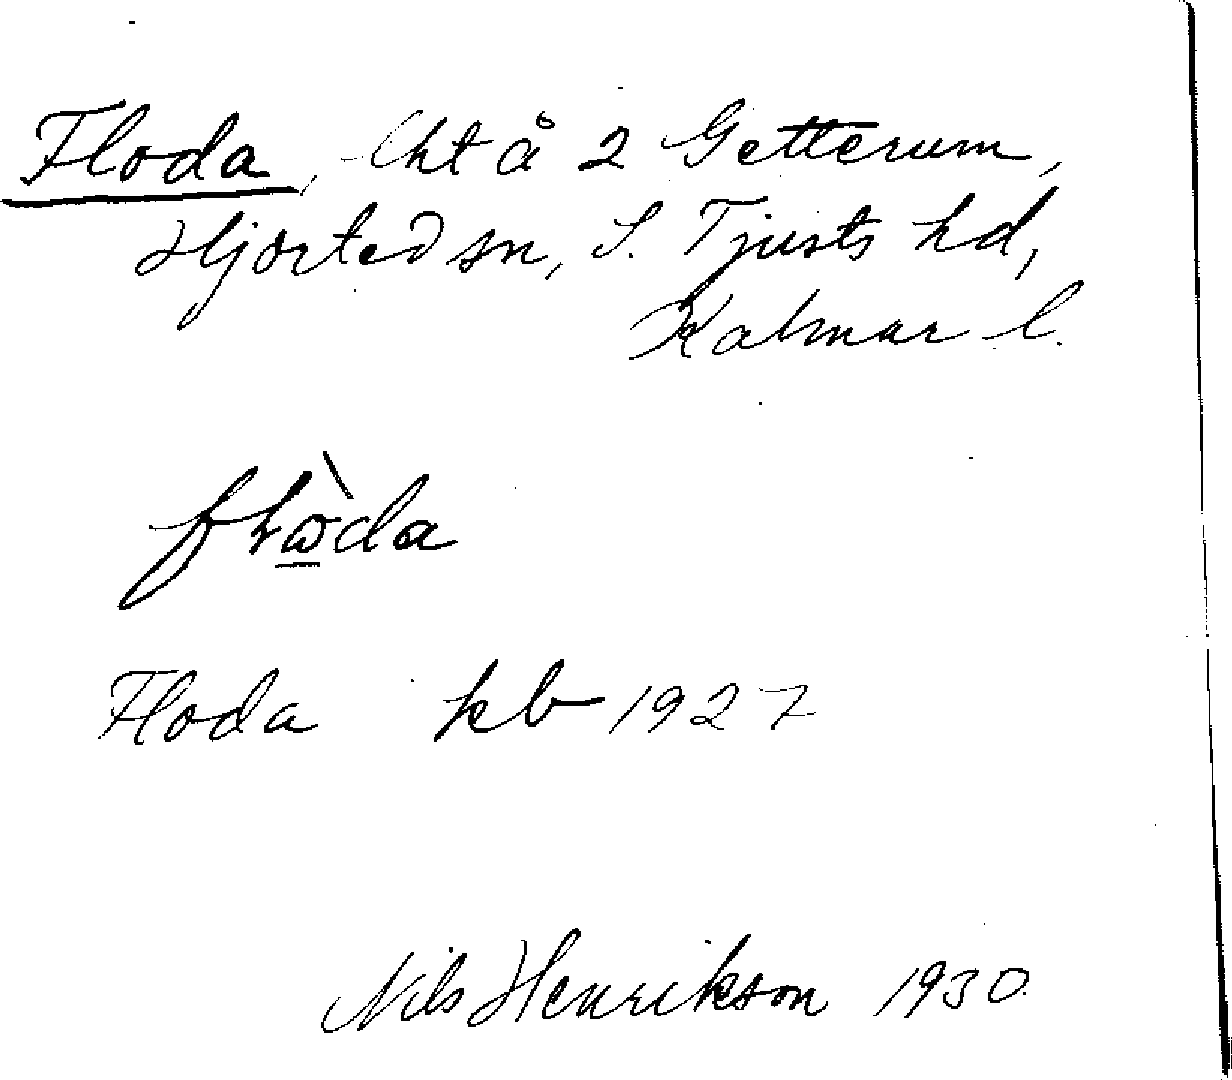 Floda, lht å 2 Getterum,
Hjorted sn, S. Tjusts hd,
Kalmar l.
Floda kb 1927
Nils Henrikson 1930